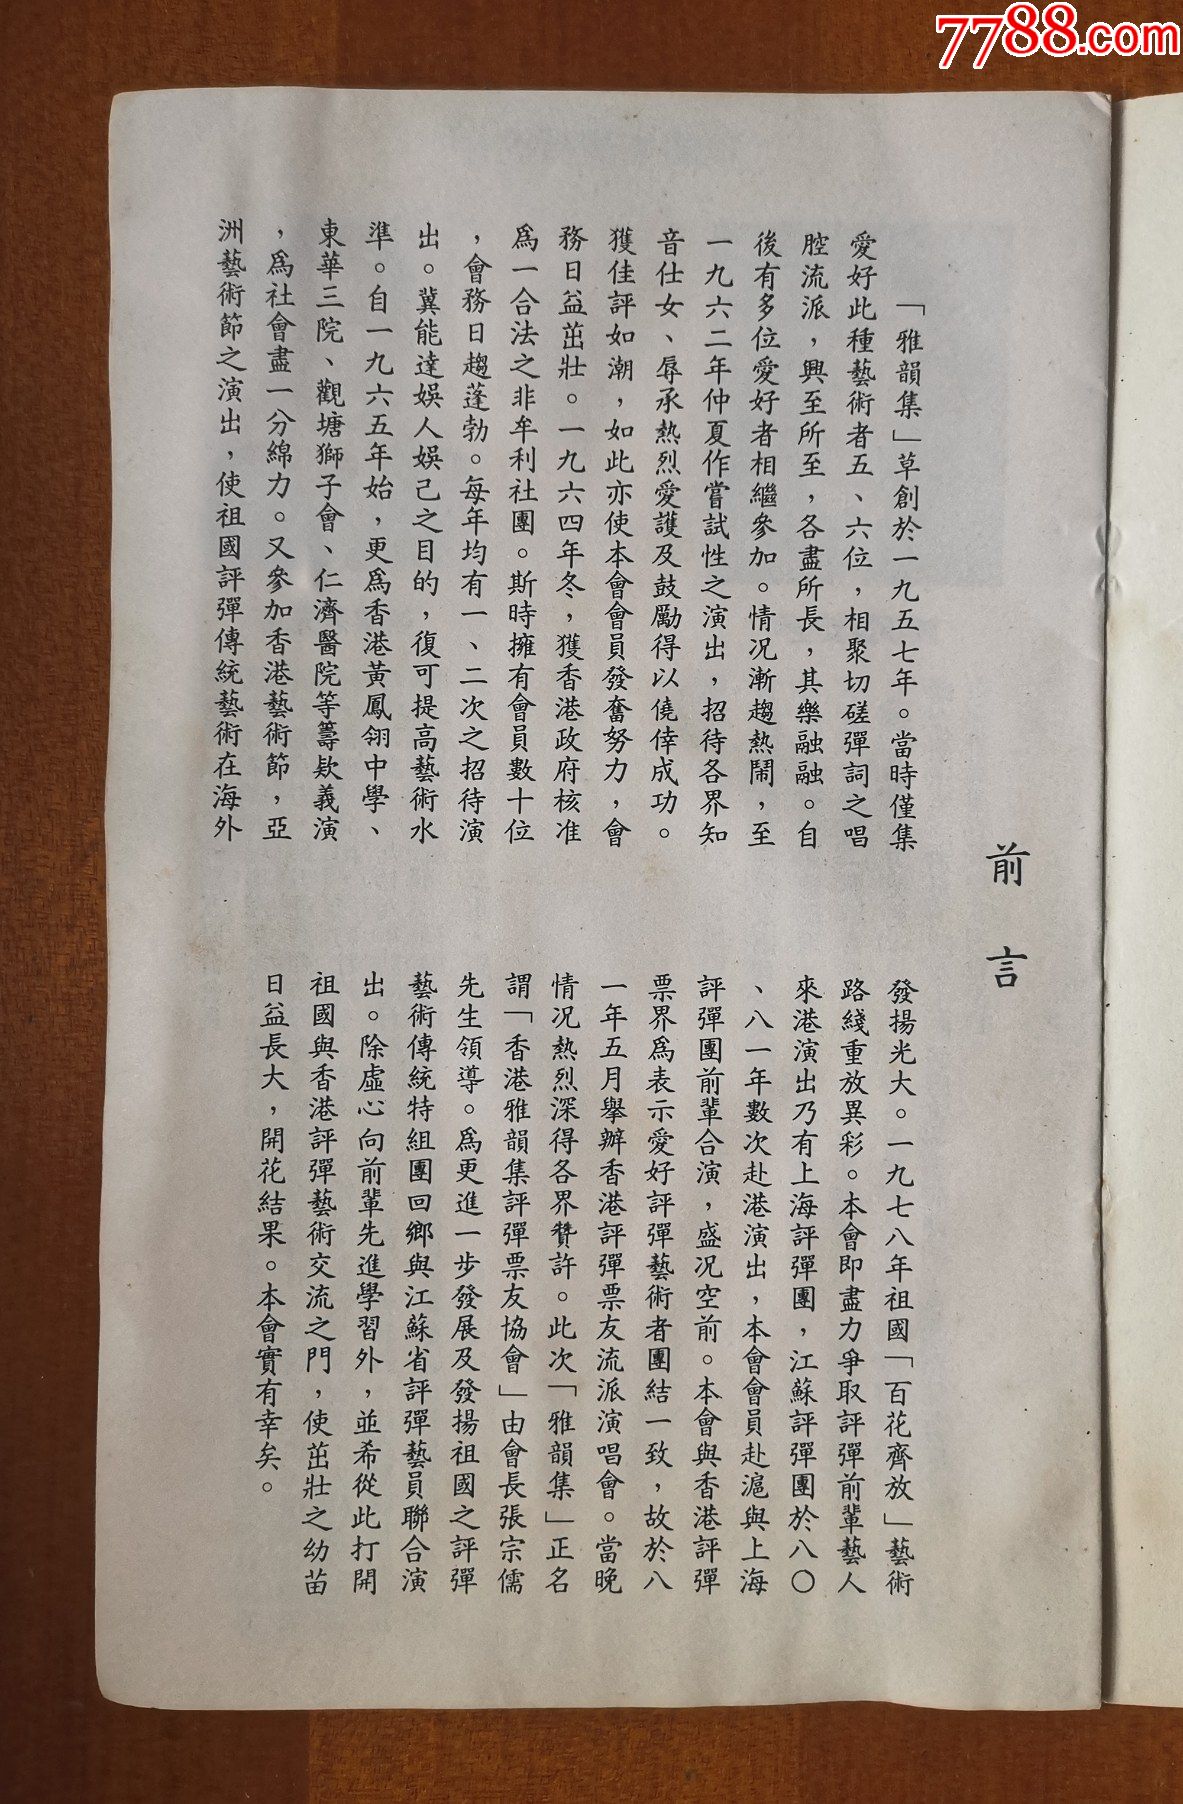 7788.com
前言
「雅韻集」草創於一九五七年。當時僅集
愛好此種藝術者五、六位，相聚切磋彈詞之唱
腔流派，興至所至，各盡所長，其樂融融。自
後有多位愛好者相繼參加。情況漸趨熱鬧，至
一九六二年仲夏作嘗試性之演出，招待各界知
音仕女、辱承熱烈愛護及鼓勵得以僥倖成功。
獲佳評如潮，如此亦使本會會員發奮努力，會
務日益茁壯。一九六四年冬，獲香港政府核准
爲一合法之非牟利社團。斯時擁有會員數十位
，會務日趨蓬勃。每年均有一、二次之招待演
出。冀能達娛人娛己之目的，復可提高藝術水
準。自一九六五年始，更爲香港黃鳳翎中學、
東華三院、觀塘獅子會、仁濟醫院等籌欵義演
，爲社會盡一分綿力。又參加香港藝術節，亞
洲藝術節之演出，使祖國評彈傳統藝術在海外
發揚光大。一九七八年祖國「百花齊放」藝術
路綫重放異彩。本會即盡力爭取評彈前輩藝人
來港演出乃有上海評彈團，江蘇評彈團於八〇
、八一年數次赴港演出，本會會員赴滬與上海
評彈團前輩合演，盛況空前。本會與香港評彈
票界爲表示愛好評彈藝術者團結一致，故於八
一年五月舉辦香港評彈票友流派演唱會。當晚
情況熱烈深得各界贊許。此次「雅韻集」正名
謂「香港雅韻集評彈票友協會」由會長張宗儒
先生領導。爲更進一步發展及發揚祖國之評彈
藝術傳統特組團回鄉與江蘇省評彈藝員聯合演
出。除虛心向前輩先進學習外，並希從此打開
祖國與香港評彈藝術交流之門，使茁壯之幼苗
日益長大，開花結果。本會實有幸矣。